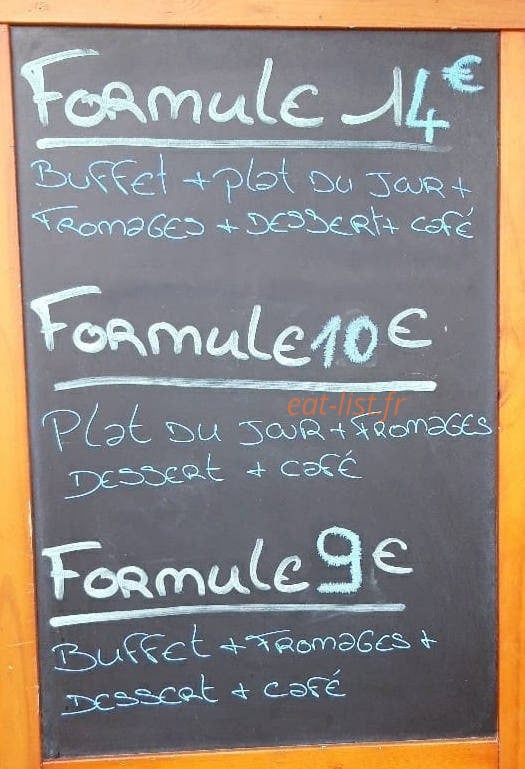 Formule 14€
Buffet + plat du jour +
Fromages + Dessert + café
Formule 10€
eat-list.fr
Plat du jour + Fromages
Dessert + café
Formule 9€
Buffet + Fromages +
Dessert + café